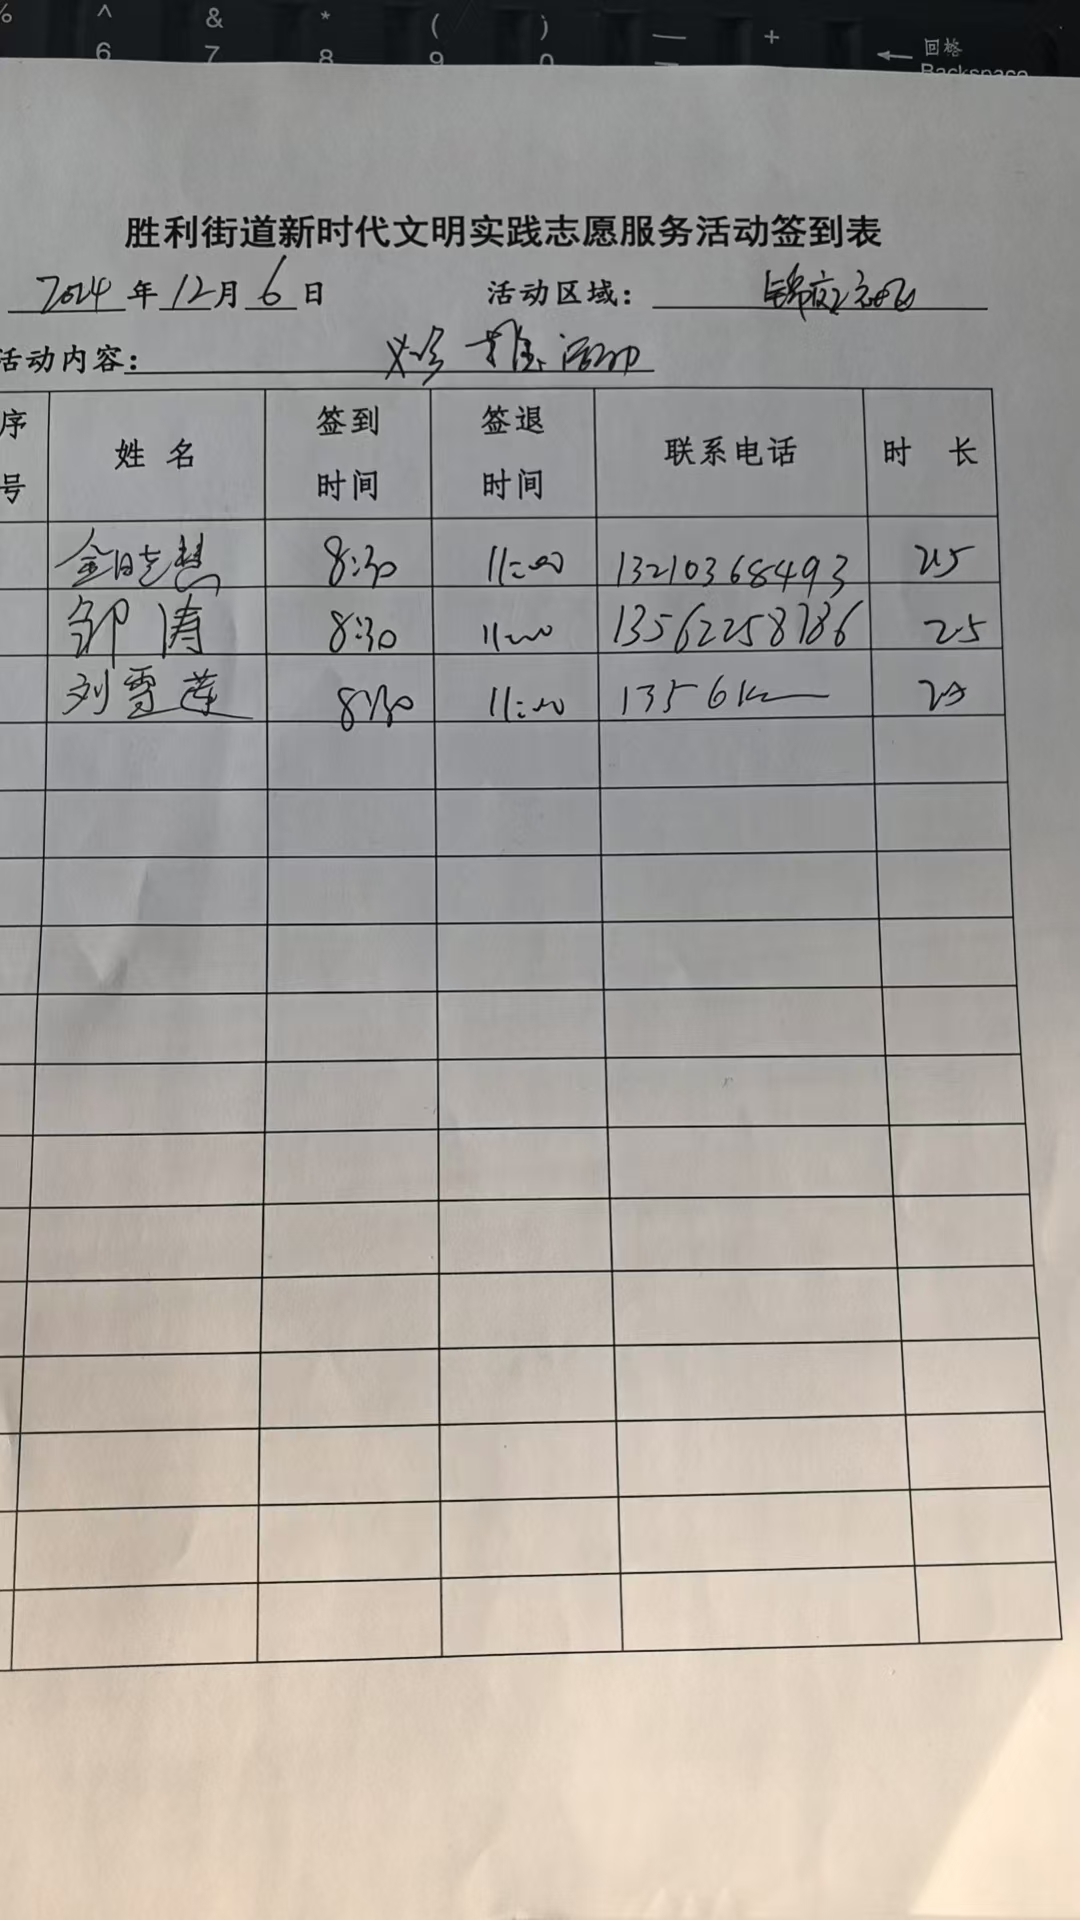 % ^ & * ( ) — +
6 7 8 9 0 — ← 回格
Backspace
胜利街道新时代文明实践志愿服务活动签到表
2024年12月6日 活动区域:
活动内容: 义诊 活动
序号 姓名 签到时间 签退时间 联系电话 时长
金晓慧 8:30 11:00 13210368493 2.5
邹涛 8:30 11:00 13562258786 2.5
刘雪莲 8:30 11:00 1356 2.5